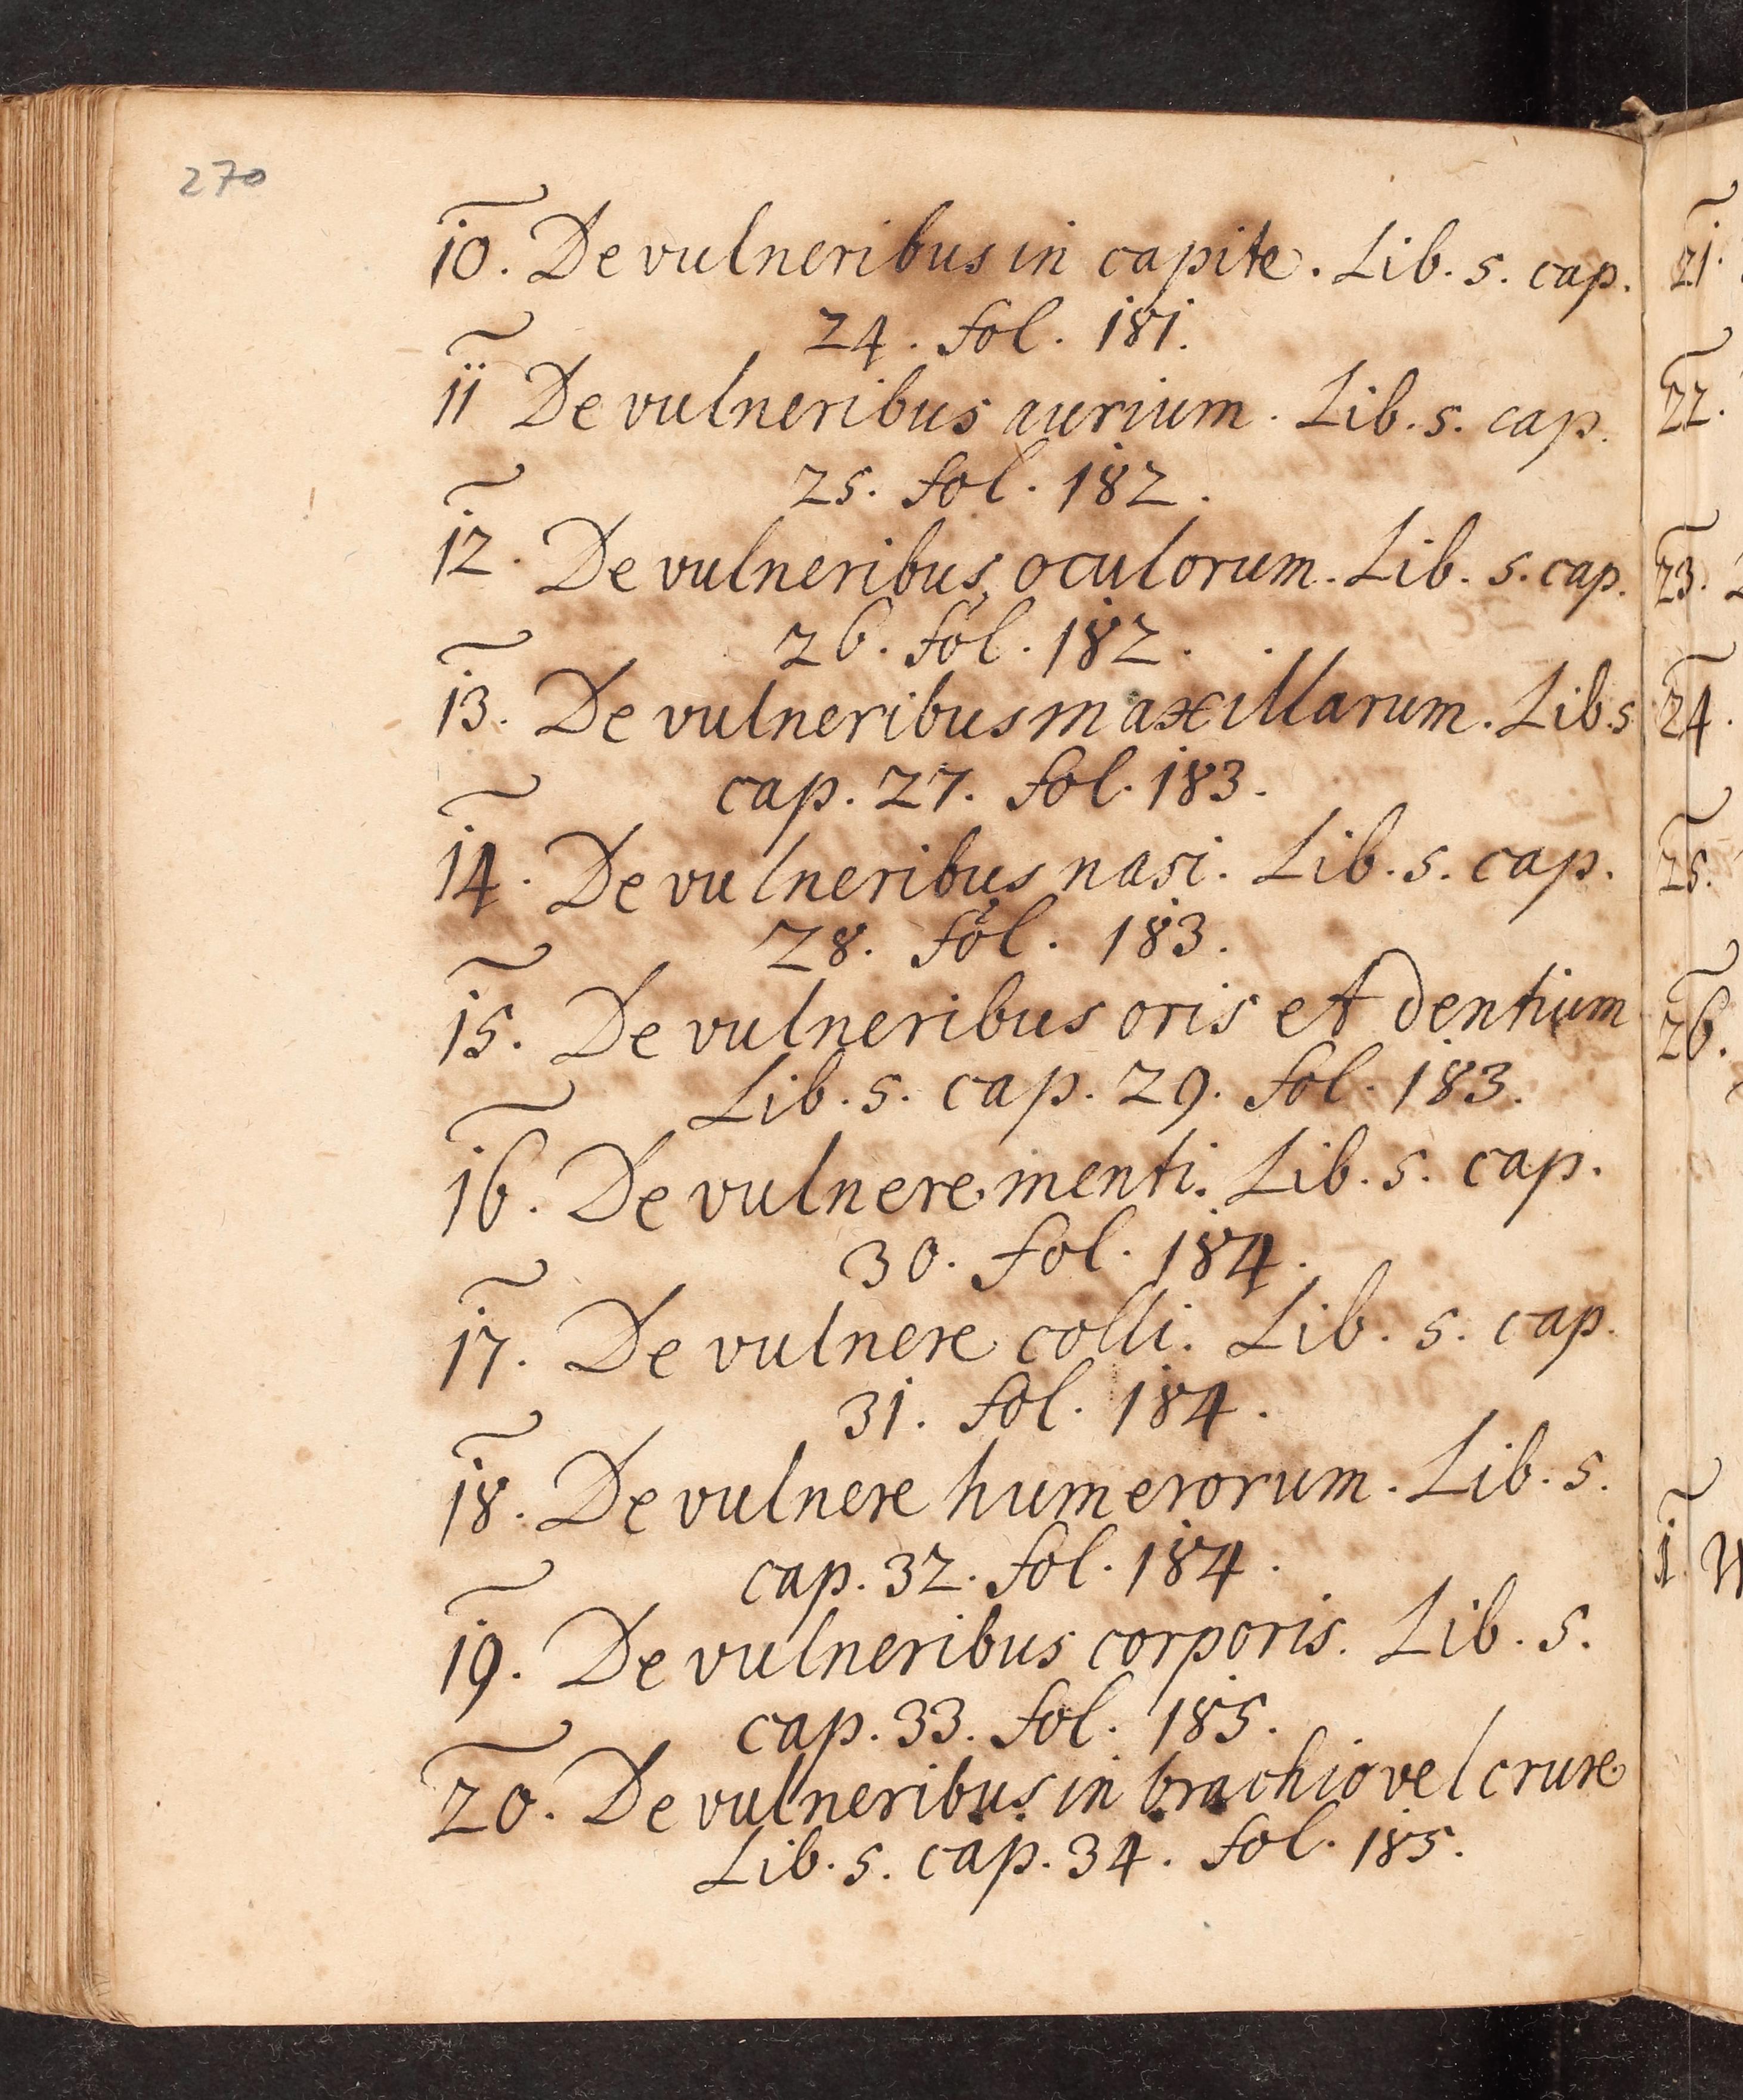 270
10. De vulneribus in capite. Lib. 5. cap.
24. fol. 181.
11 De vulneribus aurium. Lib. 5. cap.
25. fol. 182.
12. De vulneribus oculorum. Lib. 5. cap.
26. fol. 182.
13. De vulneribus maxillarum. Lib. 5
cap. 27. fol. 183.
14. De vulneribus nasi. Lib. 5. cap.
28. fol. 183.
15. De vulneribus oris et dentium
Lib. 5. cap. 29. fol. 183.
16. De vulnere menti. Lib. 5. cap.
30. fol. 184.
17. De vulnere colli. Lib. 5. cap.
31. fol. 184.
18. De vulnere humerorum. Lib. 5.
cap. 32. fol. 184.
19. De vulneribus corporis. Lib. 5.
cap. 33. fol. 185.
20. De vulneribus in brachio vel crure
Lib. 5. cap. 34. fol. 185.
21.
22.
23.
24.
25.
26.
1